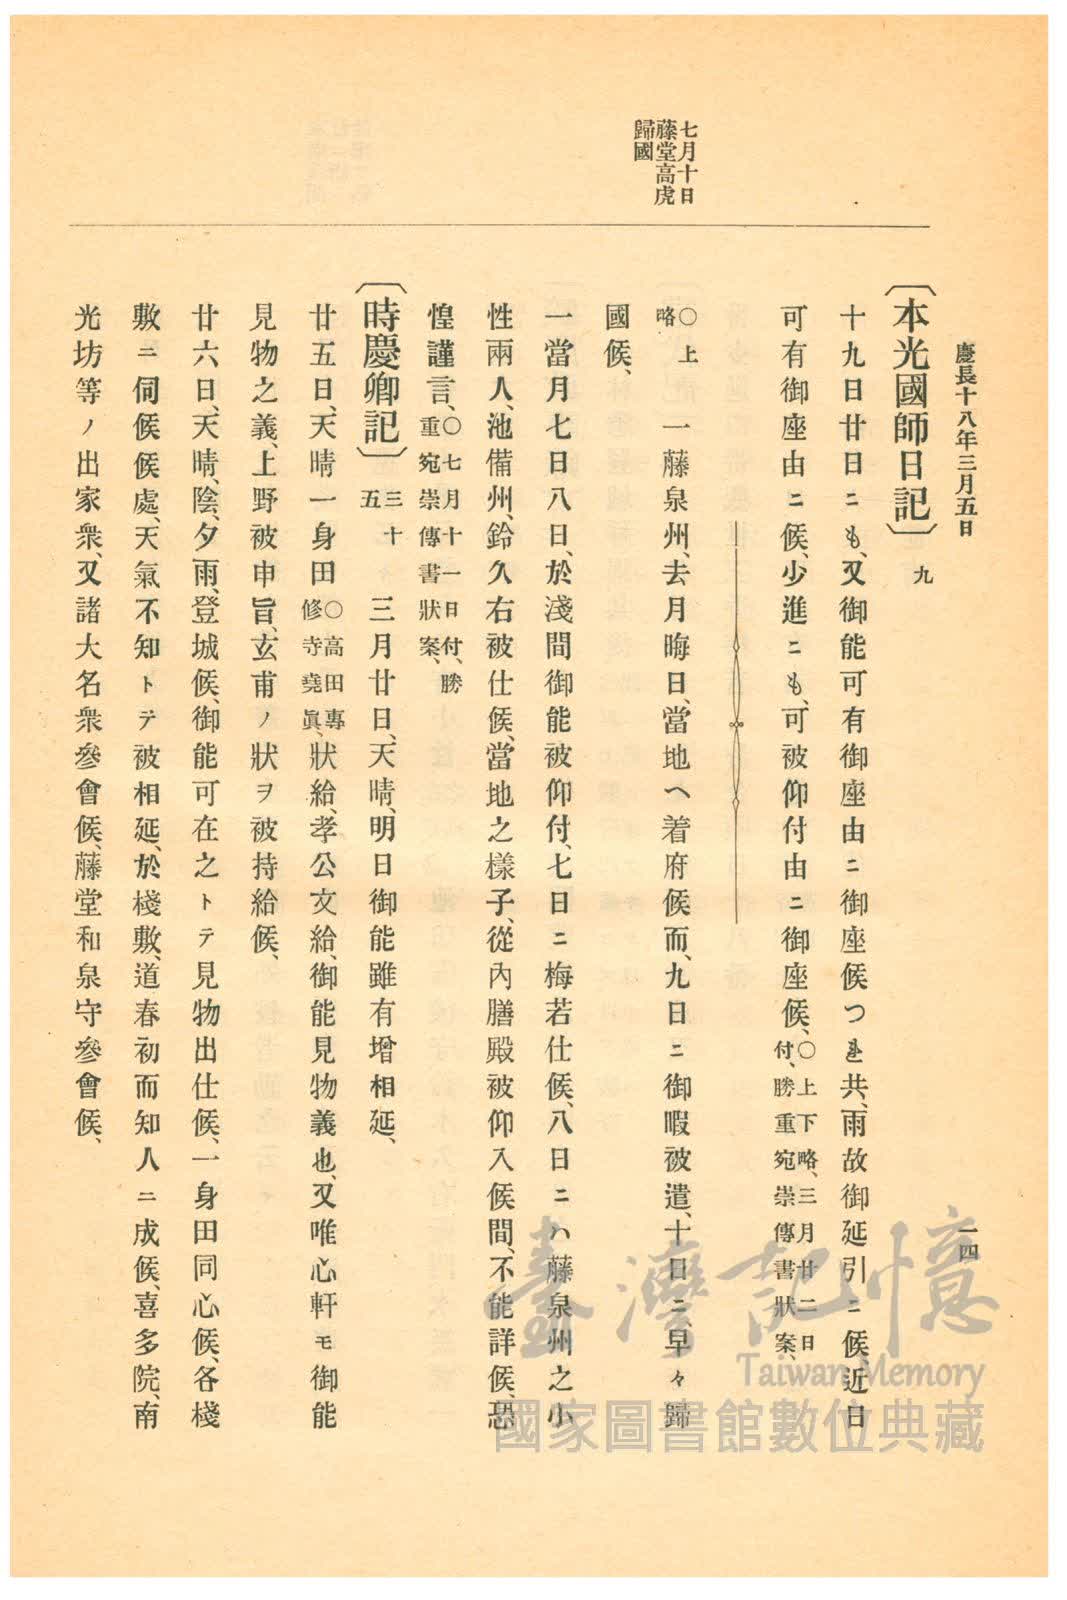 慶長十八年三月五日
一四
〔本光國師日記〕九
十九日廿日ニも、又御能可有御座由ニ御座候つれ共、雨故御延引ニ候、近日
可有御座由ニ候、少進ニも、可被仰付由ニ御座候、○上下略、三月廿二日
付、勝重宛崇傳書狀案、
七月十日
藤堂高虎
歸國
○上
略
一藤泉州、去月晦日、當地へ着府候而、九日ニ御暇被遣、十日ニ、早々歸
國候、
一當月七日八日、於淺間御能被仰付、七日ニ梅若仕候、八日ニハ藤泉州之小
性兩人、池備州、鈴久右被仕候、當地之樣子、從內膳殿被仰入候間、不能詳候、恐
惶謹言、○七月十一日付、勝
重宛崇傳書狀案、
〔時慶卿記〕三十
五
三月廿日、天晴、明日御能雖有增相延、
廿五日、天晴一身田○高田專
修寺堯眞、狀給、孝公文給、御能見物義也、又唯心軒モ御能
見物之義、上野被申旨、玄甫ノ狀ヲ被持給候、
廿六日、天晴、陰、夕雨、登城候、御能可在之トテ見物出仕候、一身田同心候、各棧
敷ニ伺候候處、天氣不知トテ被相延、於棧敷、道春初而知人ニ成候、喜多院、南
光坊等ノ出家衆、又諸大名衆參會候、藤堂和泉守參會候、
臺灣記憶
Taiwan Memory
國家圖書館數位典藏